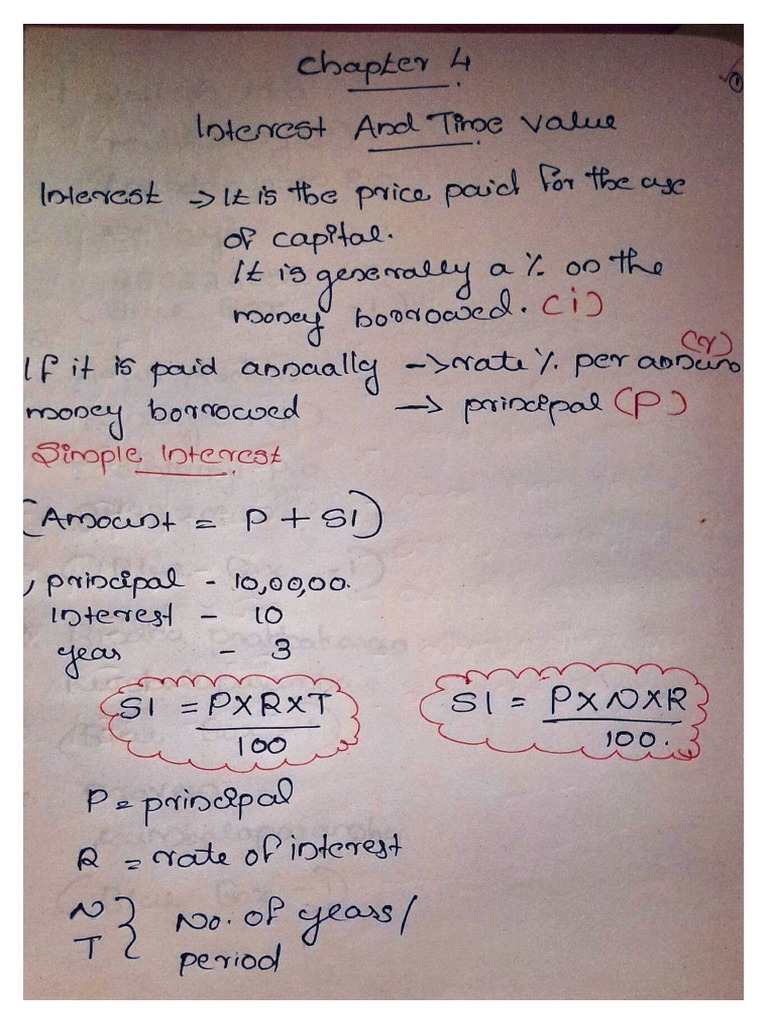 Chapter 4
①
Interest And Time value
Interest → It is the price paid for the use
of capital.
It is generally a % on the
money borrowed. (i)
(r)
If it is paid annually → rate % per annum
money borrowed → principal (P)
Simple Interest
(Amount = P + SI)
, principal - 10,00,00.
interest - 10
year - 3
SI = PXRXT
100
SI = PXNXR
100.
P = principal
R = rate of interest
N } No. of years/
T period